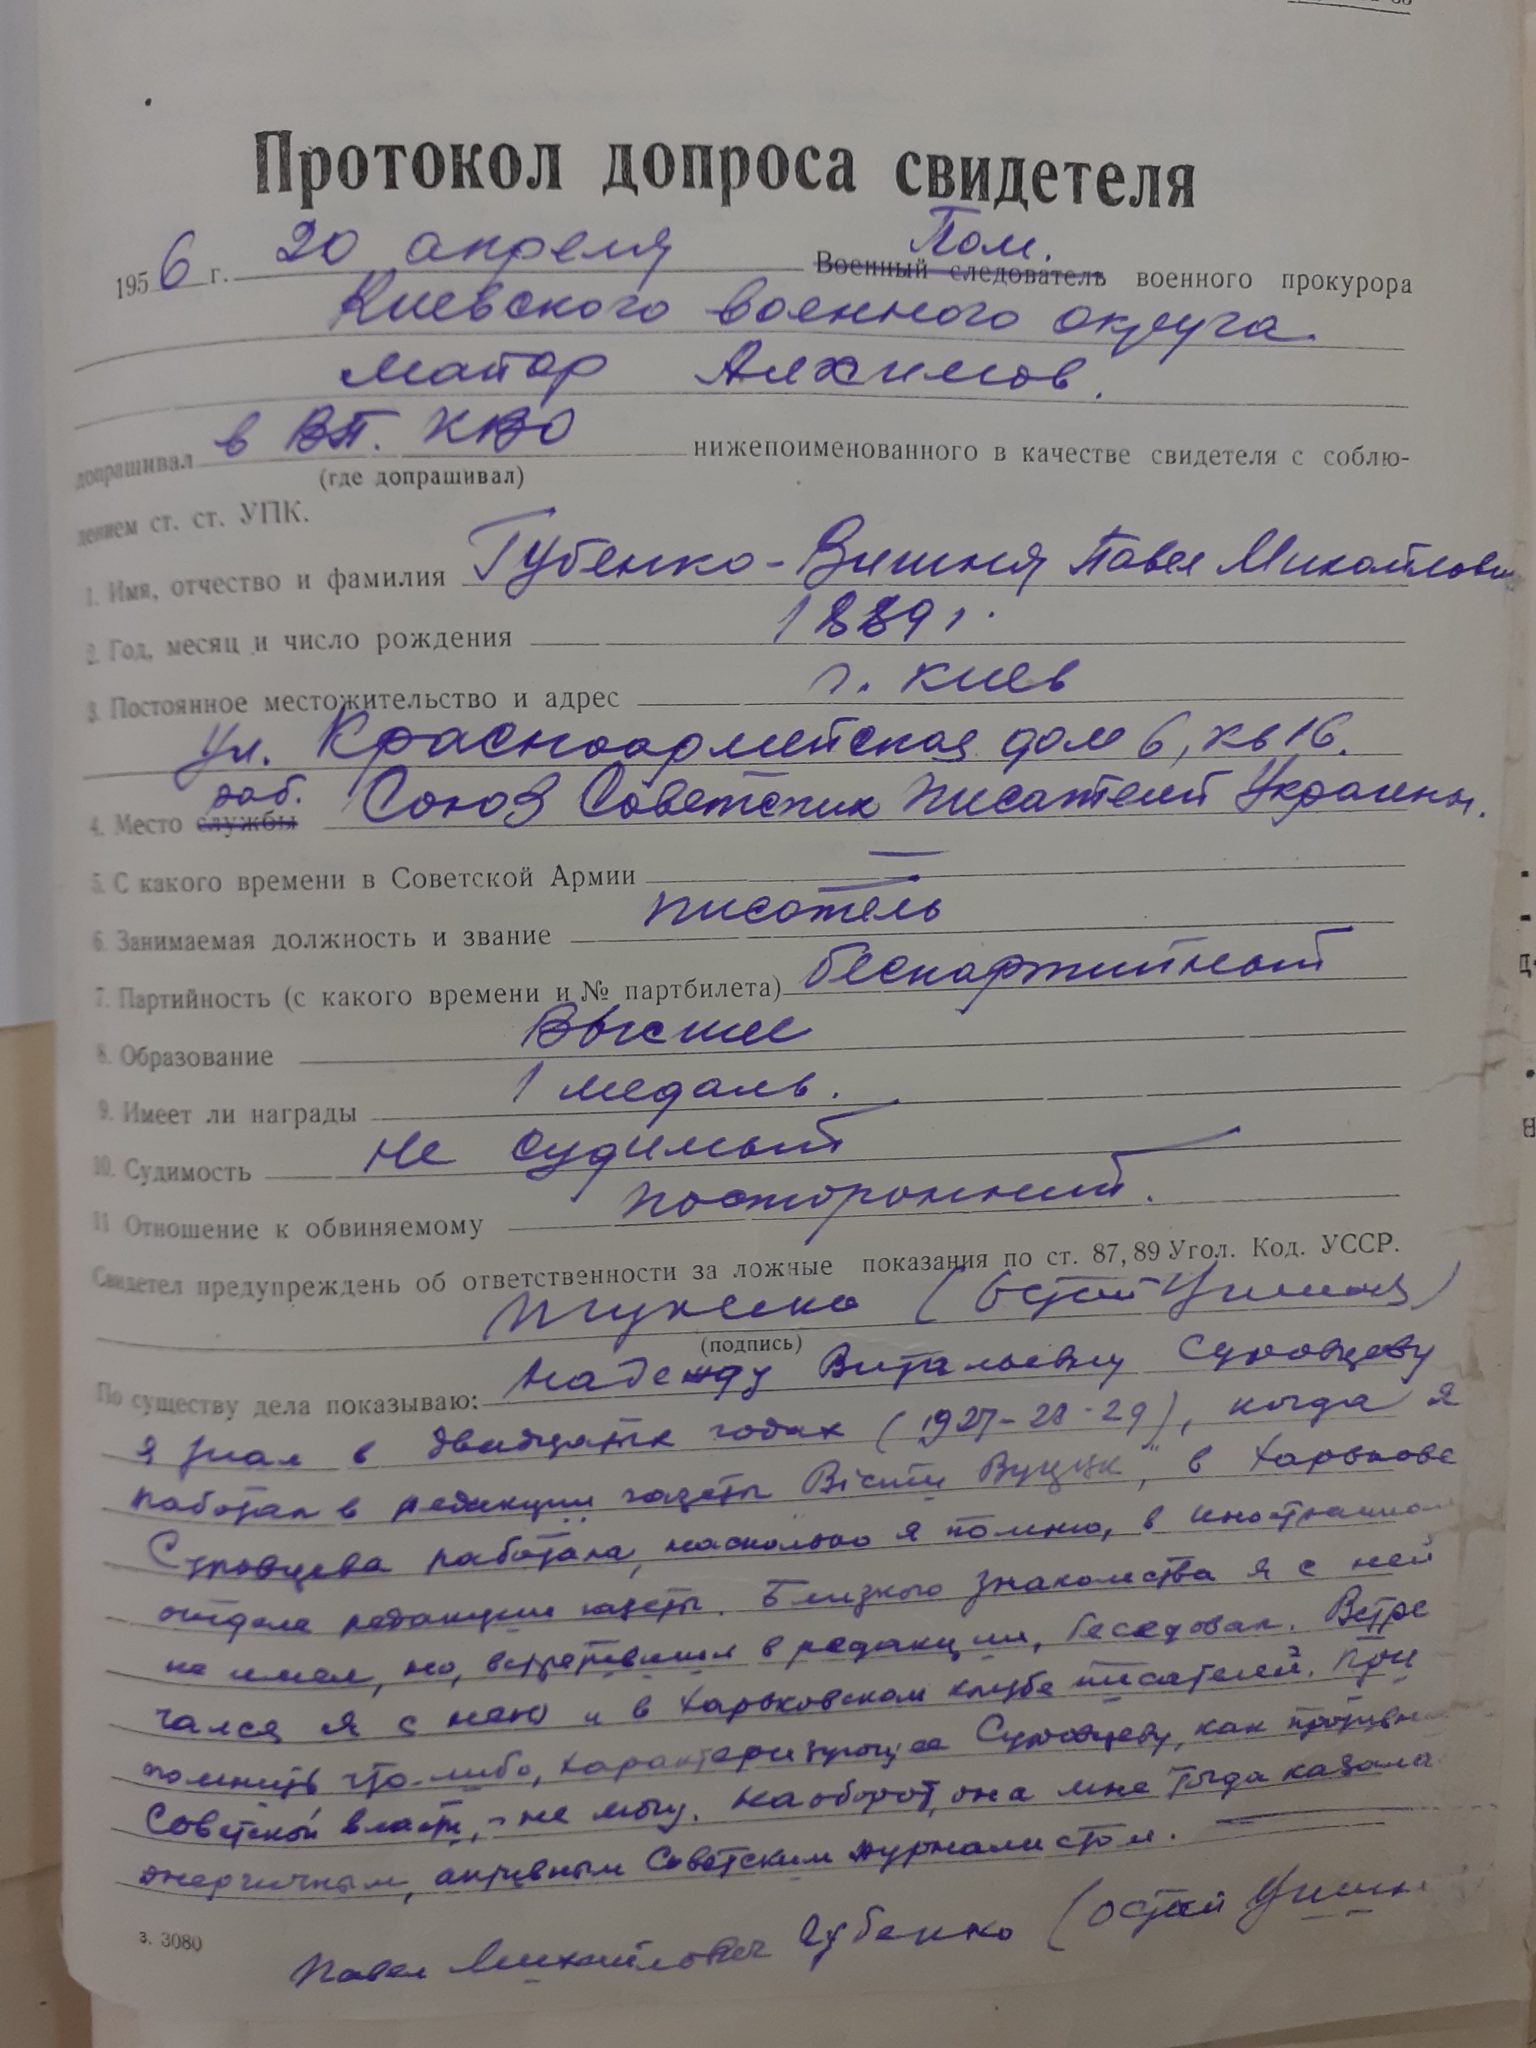 Протокол допроса свидетеля
Пом.
1956 г. 20 апреля Военный следователь военного прокурора
Киевского военного округа
майор Алхимов.
допрашивал в ВП. КВО нижепоименованного в качестве свидетеля с соблю-
(где допрашивал)
дением ст. ст. УПК.
1. Имя, отчество и фамилия Губенко-Вишня Павел Михайлович
2. Год, месяц и число рождения 1889 г.
3. Постоянное местожительство и адрес г. Киев
ул. Красноармейская дом 6, кв 16.
раб.
4. Место службы Союз Советских писателей Украины.
5. С какого времени в Советской Армии —
6. Занимаемая должность и звание писатель
7. Партийность (с какого времени и № партбилета) беспартийный
8. Образование высшее
9. Имеет ли награды 1 медаль.
10. Судимость не судимый
11 Отношение к обвиняемому посторонний.
Свидетел предупреждень об ответственности за ложные показания по ст. 87, 89 Угол. Код. УССР.
(Остап Вишня)
(подпись)
По существу дела показываю: Надежду Витальевну Суровцеву
я знал в двадцатых годах (1927-28-29), когда я
работал в редакции газеты Вісти Вуцвк", в Харькове
Суровцева работала, насколько я помню, в иностранном
отделе редакции газеты. Близкого знакомства я с ней
не имел, но, встретившись в редакции, беседовал. Встре
чался я с нею и в Харьковском клубе писателей. При
помнить что-либо, характеризующее Суровцеву, как противн
Советской власти, - не могу. Наоборот, она мне тогда казала
энергичным, активным Советским журналистом.
Павел Михайлович Губенко (Остап Вишн
з. 3080